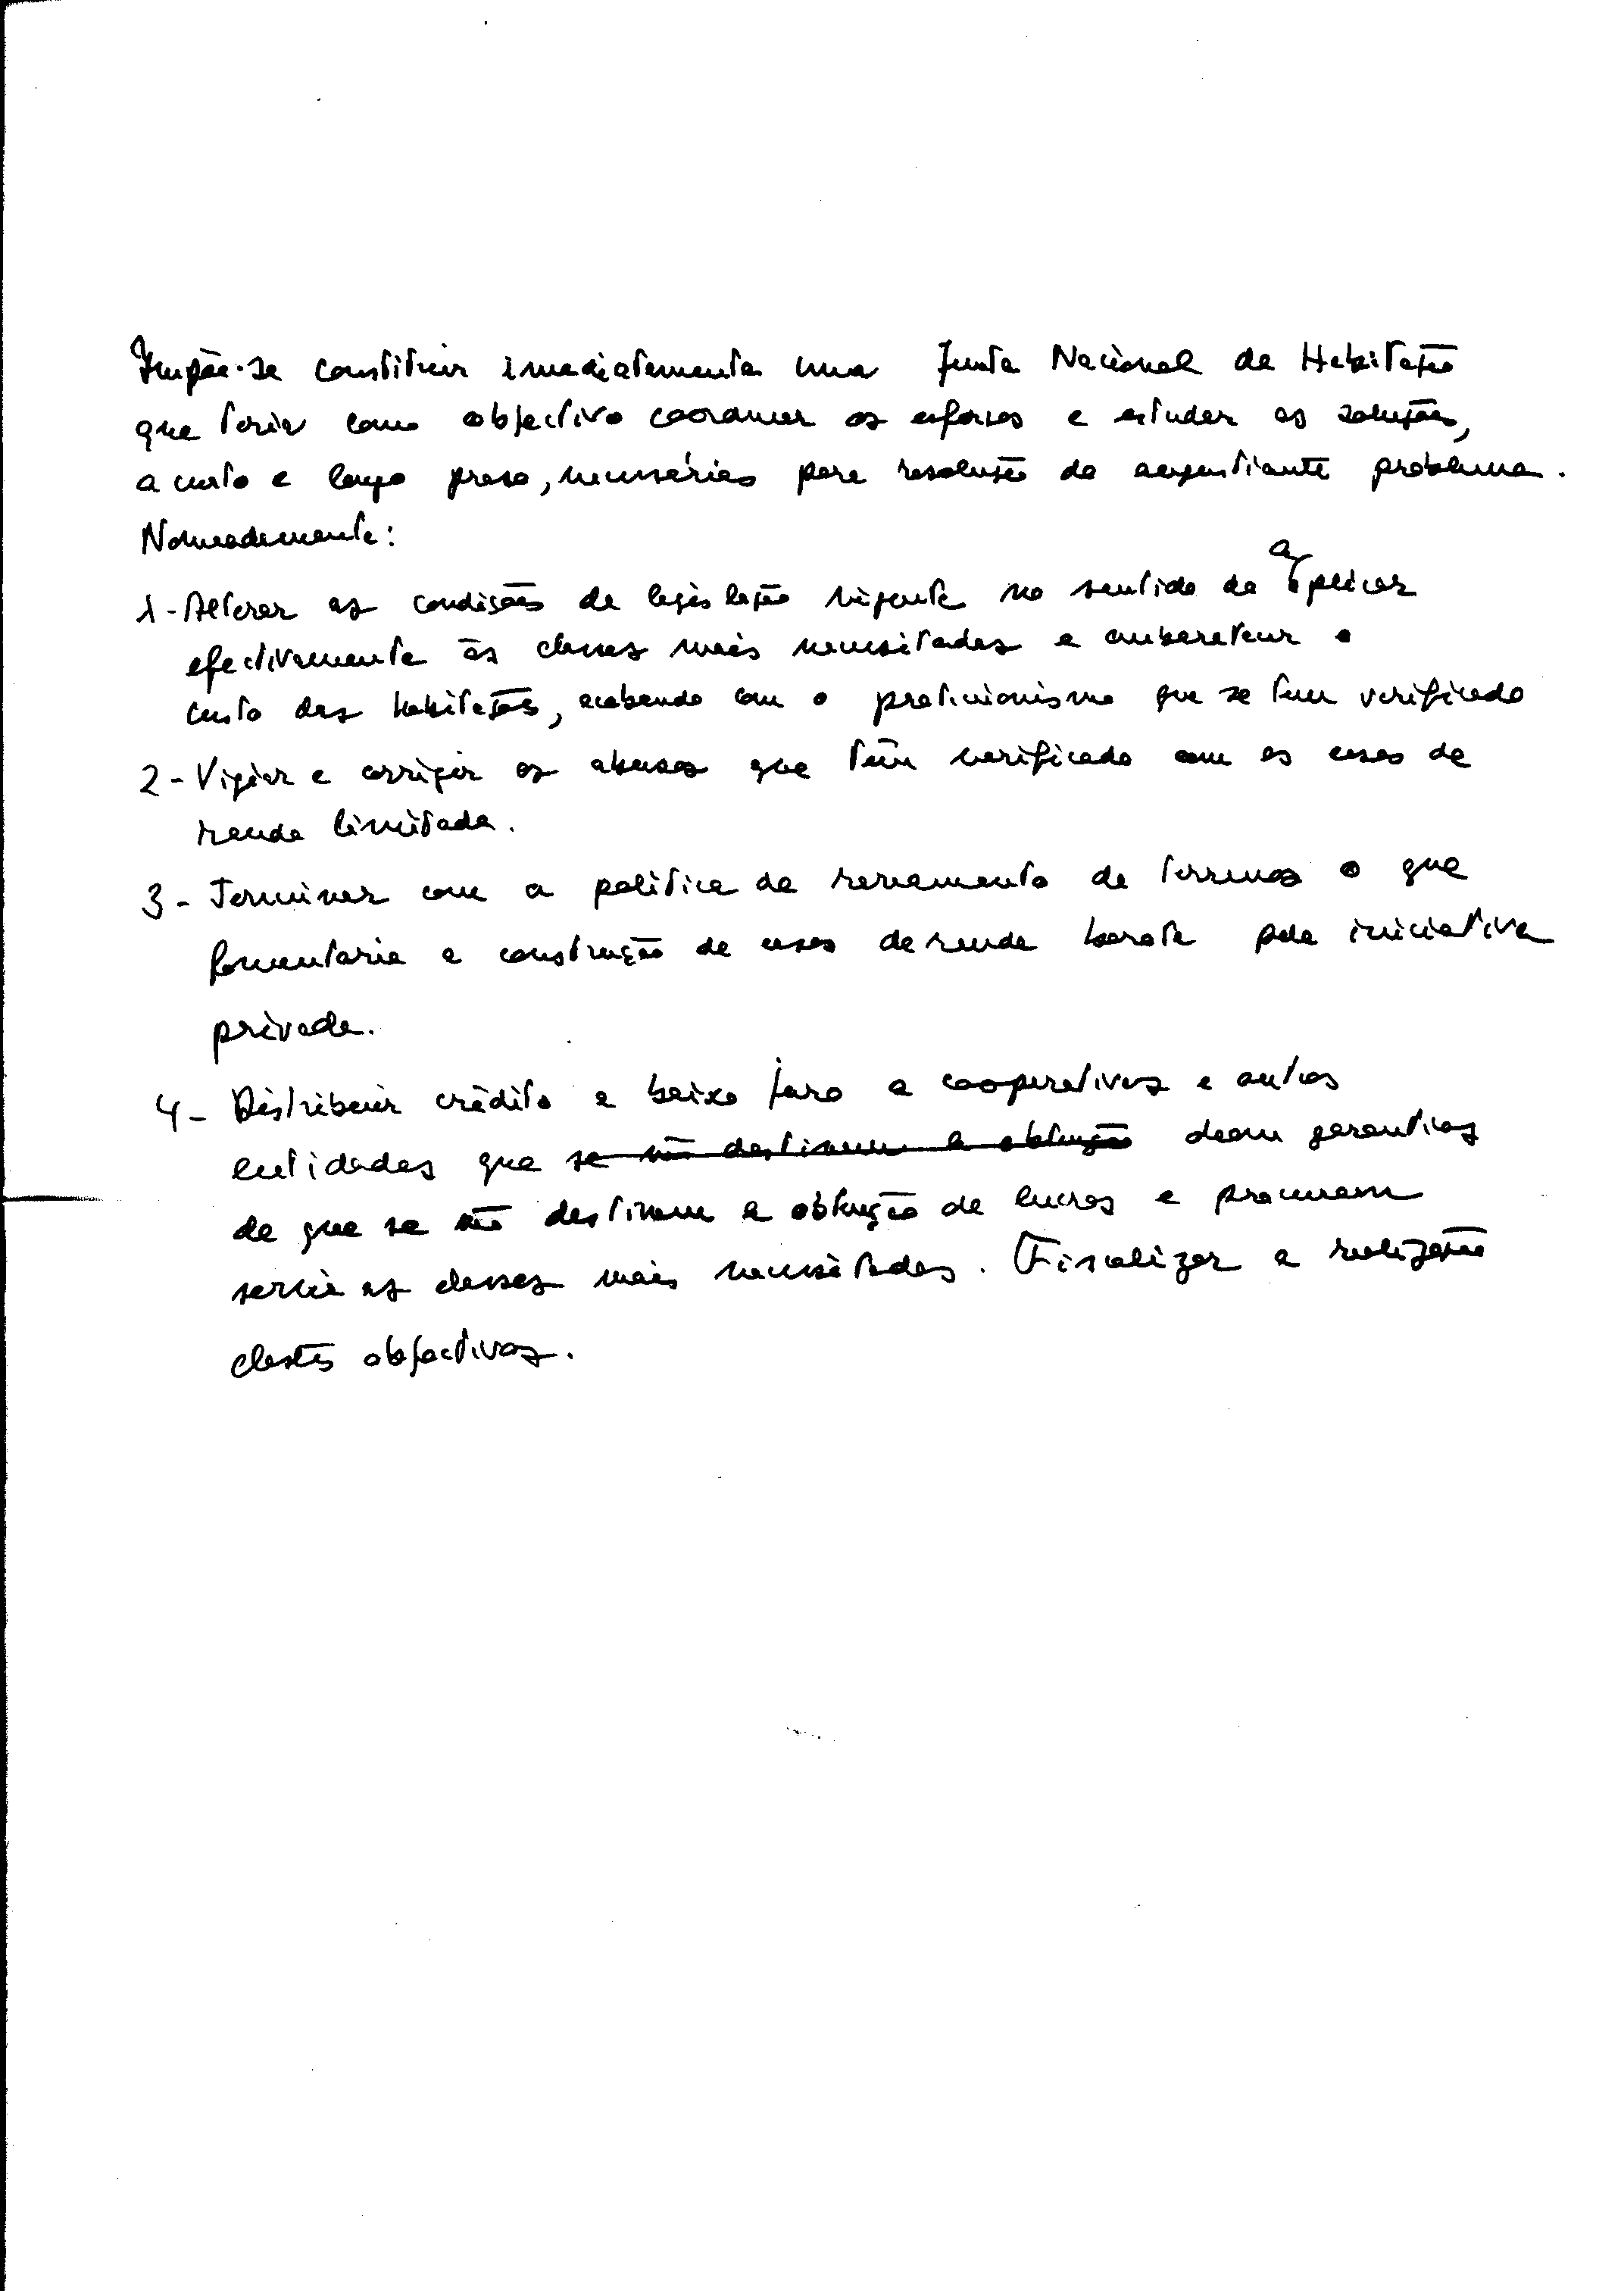 Impõe-se constituir imediatamente uma Junta Nacional de Habitação
que teria como objectivo coordenar os esforços e estudar as soluções,
a curto e longo praso, necessárias para resolução do angustiante problema.
Nomeadamente:
1 - Alterar as condições de legislação vigente no sentido de a aplicar
efectivamente às classes mais necessitadas e embaretecer o
custo das habitações, acabando com o que se tem verificado
2 - Vigiar e corrigir os abusos que têm verificado com as casas de
renda limitada.
3 - Terminar com a política de de terrenos o que
fomentaria a construção de casas de renda barata pela iniciativa
privada.
4 - Distribuir crédito a baixo juro a cooperativas e outras
entidades que se não destinem a obtenção deem garantias
de que se não destinem a obtenção de lucros e procurem
servir as classes mais necessitadas. Fiscalizar a realização
destes objectivos.